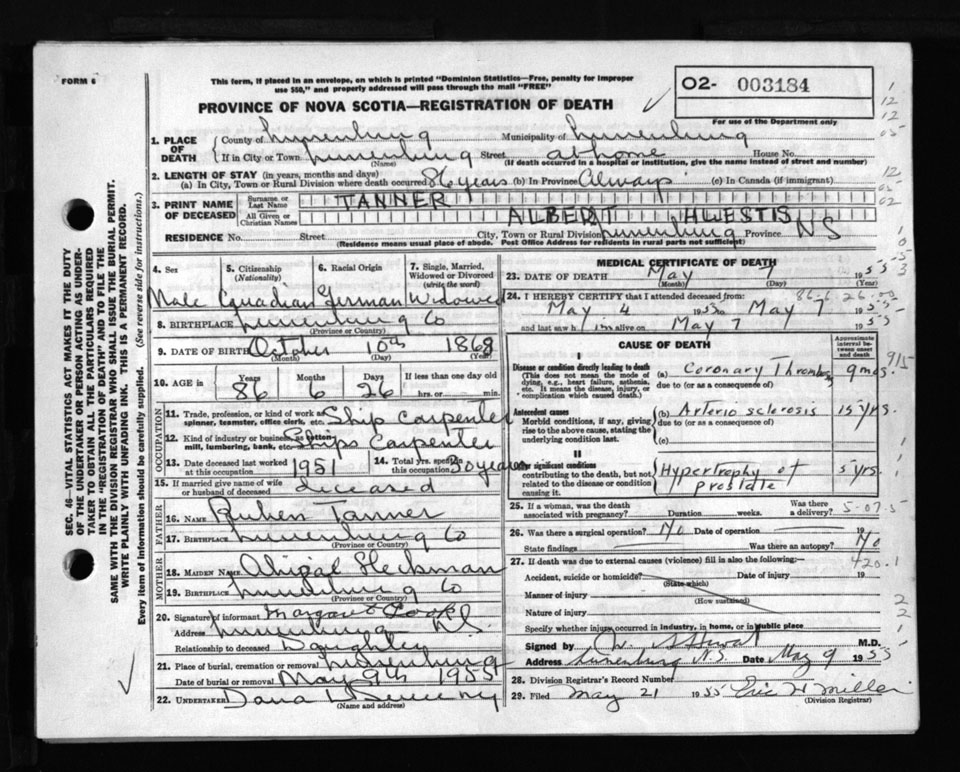 FORM 6
This form, if placed in an envelope, on which is printed "Dominion Statistics—Free, penalty for improper
use $50," and properly addressed will pass through the mail "FREE"
02- 003184
PROVINCE OF NOVA SCOTIA—REGISTRATION OF DEATH
For use of the Department only
SEC. 46- VITAL STATISTICS ACT MAKES IT THE DUTY
OF THE UNDERTAKER OR PERSON ACTING AS UNDER-
TAKER TO OBTAIN ALL THE PARTICULARS REQUIRED
IN THE "REGISTRATION OF DEATH" AND TO FILE THE
SAME WITH THE DIVISION REGISTRAR WHO SHALL ISSUE THE BURIAL PERMIT.
WRITE PLAINLY WITH UNFADING INK. THIS IS A PERMANENT RECORD.
Every item of information should be carefully supplied. (See reverse side for instructions.)
1. PLACE OF DEATH County of Lunenburg Municipality of Lunenburg
If in City or Town Lunenburg Street at home House No.
(Name) (If death occurred in a hospital or institution, give the name instead of street and number)
2. LENGTH OF STAY (in years, months and days)
(a) In City, Town or Rural Division where death occurred 86 years (b) In Province Always (c) In Canada (if immigrant)
3. PRINT NAME OF DECEASED Surname or Last Name TANNER
All Given or Christian Names ALBERT
RESIDENCE No. Street City, Town or Rural Division Lunenburg Province NS
(Residence means usual place of abode. Post Office Address for residents in rural parts not sufficient)
4. Sex 5. Citizenship (Nationality) 6. Racial Origin 7. Single, Married, Widowed or Divorced (write the word)
Male Canadian German Widowed
8. BIRTHPLACE Lunenburg Co
(Province or Country)
9. DATE OF BIRTH October 10th 1868
(Month) (Day) (Year)
10. AGE in Years Months Days If less than one day old
86 6 26 hrs. or min.
OCCUPATION
11. Trade, profession, or kind of work as spinner, teamster, office clerk, etc. Ship Carpenter
12. Kind of industry or business, as cotton-mill, lumbering, bank, etc. Ships Carpenter
13. Date deceased last worked at this occupation 1951 14. Total yrs. spent in this occupation 50 years
15. If married give name of wife or husband of deceased deceased
FATHER
16. NAME Ruben Tanner
17. BIRTHPLACE Lunenburg Co
(Province or Country)
MOTHER
18. MAIDEN NAME Abigal Heckman
19. BIRTHPLACE Lunenburg Co
(Province or Country)
20. Signature of informant Margaret Cook
Address Lunenburg N.S.
Relationship to deceased Daughter
21. Place of burial, cremation or removal Lunenburg
Date of burial or removal May 9th 1955
22. UNDERTAKER Dana
(Name and address)
MEDICAL CERTIFICATE OF DEATH
23. DATE OF DEATH May 7 1955
(Month) (Day) (Year)
86 6 26
24. I HEREBY CERTIFY that I attended deceased from:
May 4 1955 to May 7 1955
and last saw him alive on May 7 1955
CAUSE OF DEATH
Approximate interval between onset and death
I
Disease or condition directly leading to death
(This does not mean the mode of dying, e.g., heart failure, asthenia, etc. It means the disease, injury, or complication which caused death.)
(a) Coronary Thrombosis 9 mos. 915
due to (or as a consequence of)
Antecedent causes
Morbid conditions, if any, giving rise to the above cause, stating the underlying condition last.
(b) Arterio sclerosis 15 yrs.
due to (or as a consequence of)
(c)
II
Other significant conditions
contributing to the death, but not related to the disease or condition causing it.
Hypertrophy of prostate 5 yrs.
25. If a woman, was the death associated with pregnancy? Duration weeks. Was there a delivery?
26. Was there a surgical operation? No Date of operation 19
State findings Was there an autopsy? No
27. If death was due to external causes (violence) fill in also the following:— 420.1
Accident, suicide or homicide? Date of injury 19
(State which)
Manner of injury
(How sustained)
Nature of injury
Specify whether injury occurred in industry, in home, or in public place
Signed by M.D.
Address Lunenburg NS Date May 9 1955
28. Division Registrar's Record Number
29. Filed May 21 1955 Eric H Miller
(Division Registrar)